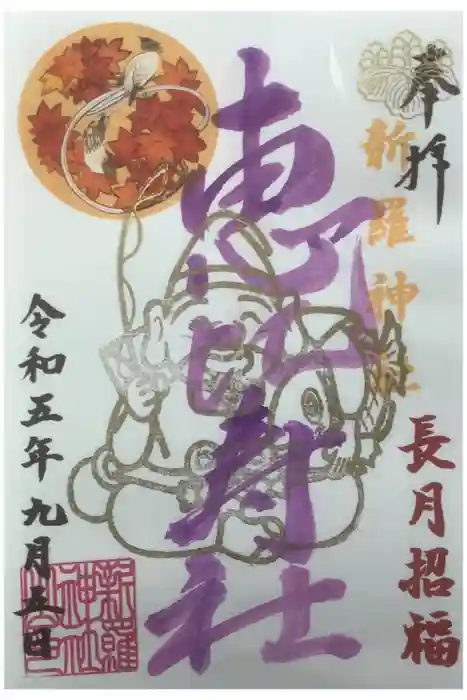 奉拝
新羅神社
長月招福
恵比寿社
令和五年九月五日
新羅神社